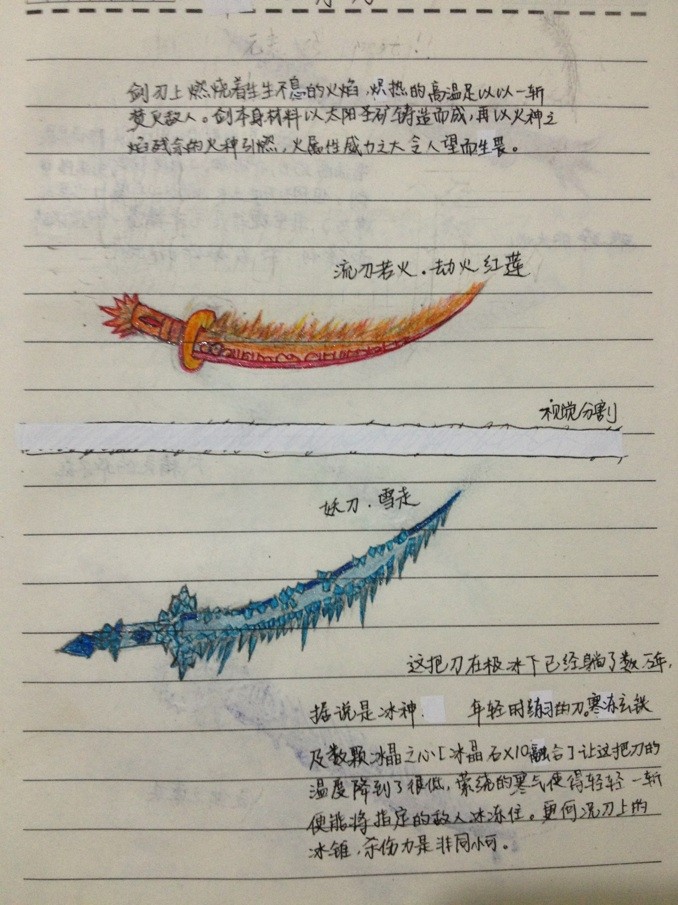 剑刃上燃烧着生生不息的火焰，炽热的高温足以以一斩
焚灭敌人。剑本身材料以太阳圣矿铸造而成，再以火神之
焰残余的火种引燃，火属性威力之大令人望而生畏。
流刃若火·劫火红莲
视觉分割
妖刀·雪走
这把刀在极冰下已经躺了数万年，
据说是冰神 年轻时练习的刀。寒冻玄铁
及数颗冰晶之心[冰晶石X10融合]让这把刀的
温度降到了很低，萦绕的寒气使得轻轻一斩
便能将指定的敌人冰冻住。更何况刀上的
冰锥，杀伤力是非同小可。